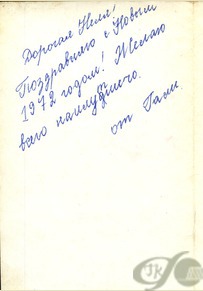 Дорогая Неля!
Поздравляю с Новым
1972 годом! Желаю
всего наилучшего.
от Гали.